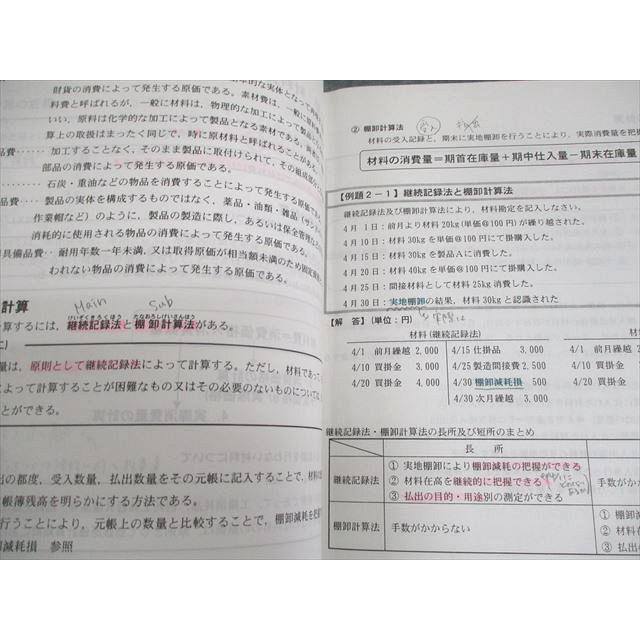 財貨の消費によって発生する原価である。素材費は、一般に
料費と呼ばれるが、一般に材料は、物理的な加工によって製品と
いい、原料は化学的な加工によって製品となる素材である。
算上の取扱はまったく同じで、時に原材料と呼ばれることがある
品費…… 加工することなく、そのまま製品に取付けられて、その組成部
部品の消費によって発生する原価である。
…… 石炭・重油などの物品を消費することによって発生する
製品の実体を構成するものではなく、薬品・油類・雑品(サン
作業帽など)のように、製品の製造に際し、あるいは保全管理
消耗的に使用される物品の消費によって発生する原価である。
具備品費‥ 耐用年数一年未満、又は取得原価が相当額未満のため固定
われない物品の消費によって発生する原価である。
計算
Main Sub
けいぞくきろくほう たなおろしけいさんほう
計算するには、継続記録法と棚卸計算法がある。
量は、原則として継続記録法によって計算する。ただし、材料であって
よって計算することが困難なもの又はその必要のないものについては
とができる。
出の都度、受入数量、払出数量をその元帳に記入することで、材料
帳簿残高を明らかにする方法である。
行うことにより、元帳上の数量と比較することで、棚卸減耗を把
減耗損 参照
② 棚卸計算法
材料の受入記録と、期末に実地棚卸を行うことにより、実際消費量を把握
材料の消費量=期首在庫量+期中仕入量-期末在庫量
【例題2-1】継続記録法と棚卸計算法
継続記録法及び棚卸計算法により、材料勘定を記入しなさい。
4月 1日:前月より材料20kg(単価@100円)が繰り越された。
4月10日:材料30kgを単価@100円にて掛購入した。
4月15日:材料30kgを製品Aに消費した。
4月20日:材料40kgを単価@100円にて掛購入した。
4月25日:間接材料として材料25kg消費した。
4月30日:実地棚卸の結果、材料30kgと認識された
【解 答】(単位:円)
材料(継続記録法)
4/1 前月繰越 2,000 4/15 仕掛品 3,000 4/1 前月繰越
4/10 買掛金 3,000 4/25 製造間接費 2,500 4/10 買掛金
4/20 買掛金 4,000 4/30 棚卸減耗損 500 4/20 買掛金
4/30 次月繰越 3,000
継続記録法・棚卸計算法の長所及び短所のまとめ
長 所
継続記録法
① 実地棚卸により棚卸減耗の把握ができる
② 材料在高を継続的に把握できる
③ 払出の目的・用途別の測定ができる
手数がかか
棚卸計算法 手数がかからない
① 棚卸減
② 材料在
③ 払出の